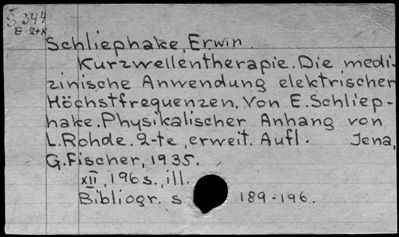 S 344
E 2+K
Schliephake, Erwin.
Kurzwellentherapie. Die medi-
zinische Anwendung elektrischer
Höchstfrequenzen. Von E. Schliep-
hake. Physikalischer Anhang von
L. Rohde. 2-te, erweit. Aufl. Jena,
G. Fischer, 1935.
XII, 196 s., ill.
Bibliogr. s. 189-196.